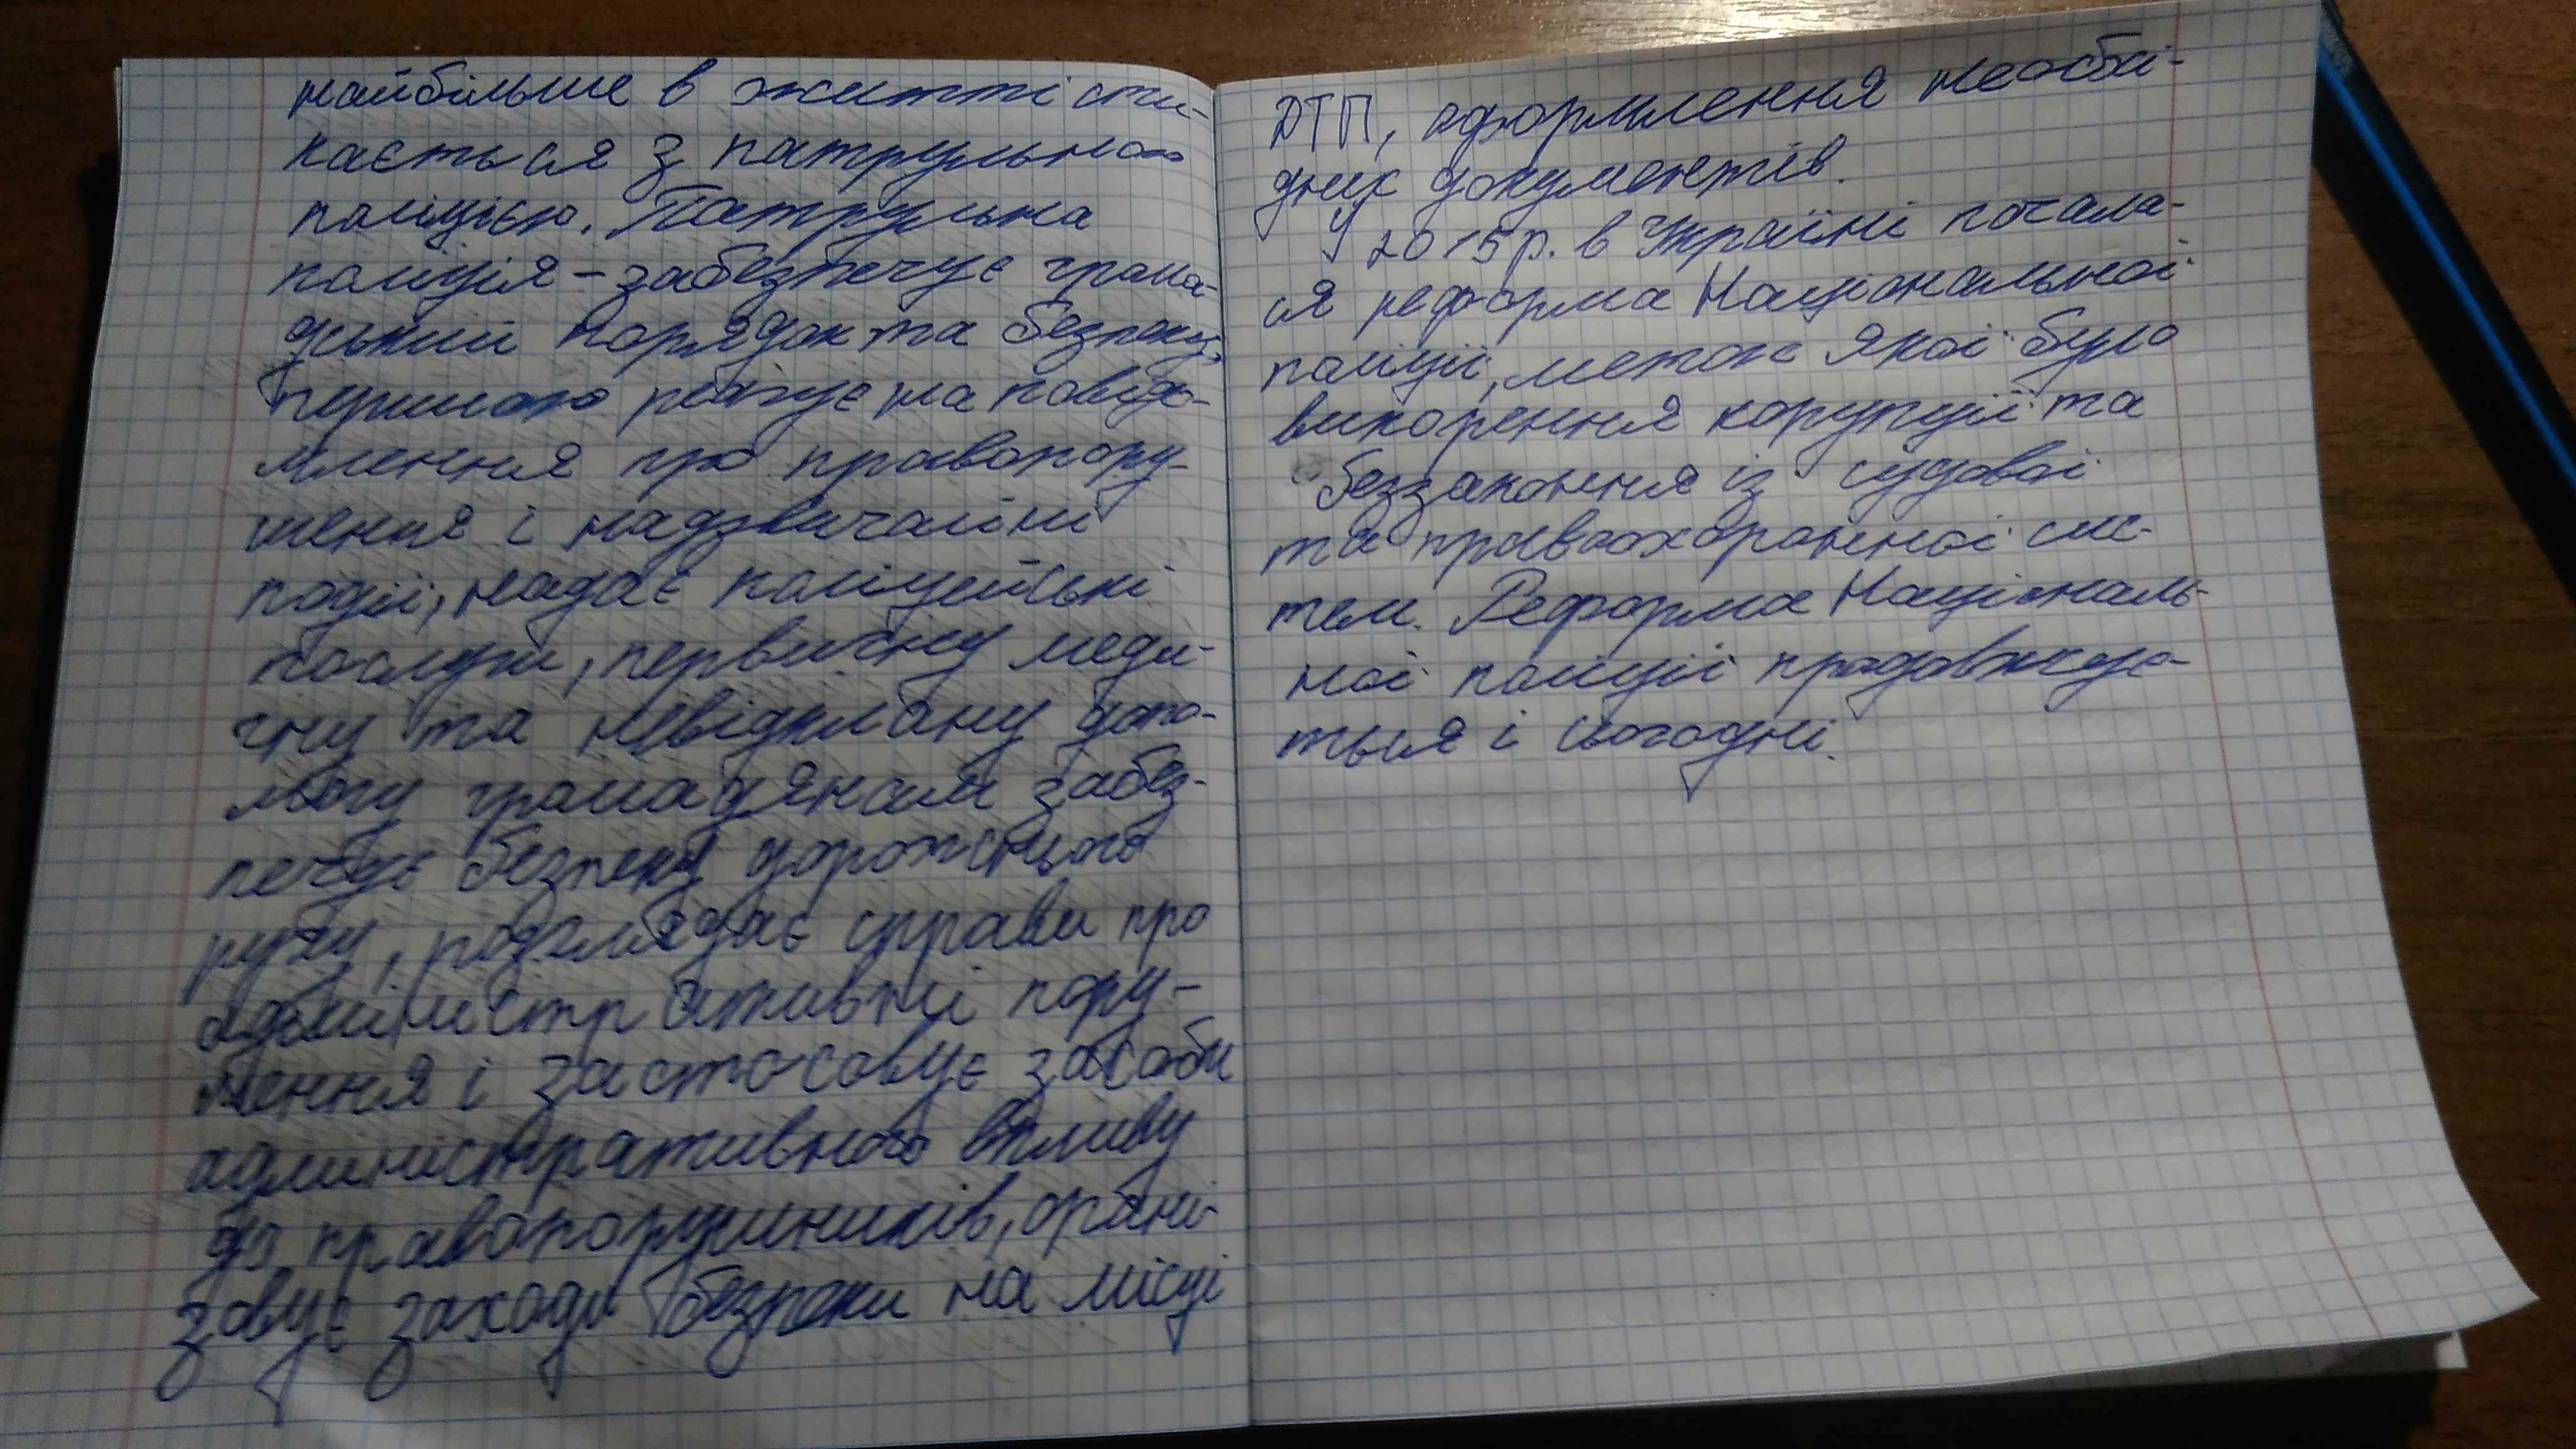 найбільше в житті сти-
кається з патрульною
поліцією. Патрульна
поліція – забезпечує грома-
дський порядок та безпеку,
першою реагує на повідо-
млення про правопору-
шення і надзвичайні
події, надає поліцейські
послуги, первинну меди-
чну та невідкладну допо-
могу громадянам забез-
печує безпеку дорожнього
руху, розглядає справи про
адміністративні пору-
шення і застосовує засоби
адміністративного впливу
до правопорушників, органі-
зовує заходи безпеки на місці
ДТП, оформлення необхі-
дних документів.
У 2015 р. в Україні почала-
ся реформа Національної
поліції, метою якої було
викорення корупції та
беззаконня із судової
та правоохоронної сис-
тем. Реформа Національ-
ної поліції продовжує-
ться і сьогодні.